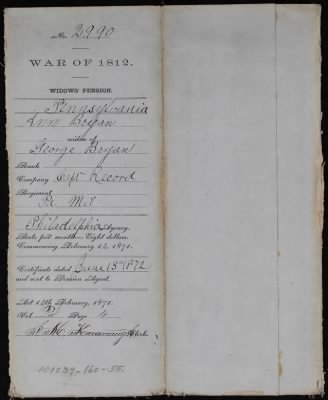 No. 2990
WAR OF 1812.
WIDOWS' PENSION.
Pennsylvania
Ann Bryan
widow of
George Bryan
Rank
Company Capt Record
Regiment
Pa Mil
Philadelphia Agency.
Rate per month, Eight dollars.
Commencing February 14, 1871.
Certificate dated June 13th 1872
and sent to Pension Agent.
Act 14th February, 1871.
Vol. Page 4
Clerk.